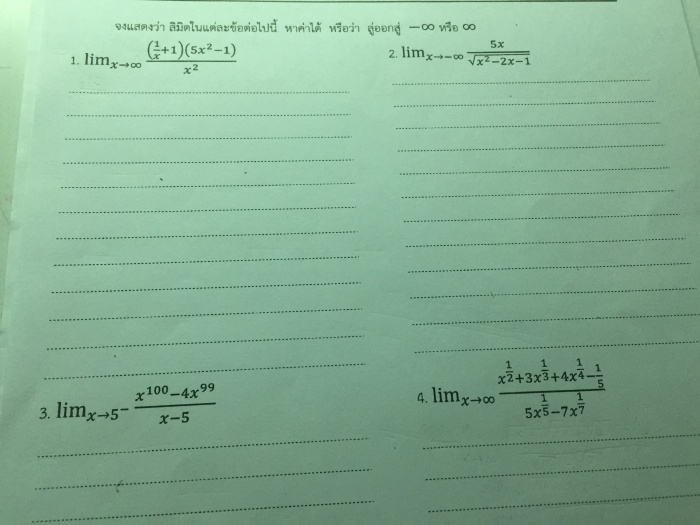 จงแสดงว่า ลิมิตในแต่ละข้อต่อไปนี้ หาค่าได้ หรือว่า ลู่ออกสู่ −∞ หรือ ∞
1. lim_{x→∞} \frac{(\frac{1}{x}+1)(5x^2−1)}{x^2}
2. lim_{x→−∞} \frac{5x}{\sqrt{x^2−2x−1}}
3. lim_{x→5^−} \frac{x^{100}−4x^{99}}{x−5}
4. lim_{x→∞} \frac{x^{\frac{1}{2}}+3x^{\frac{1}{3}}+4x^{\frac{1}{4}}−\frac{1}{5}}{5x^{\frac{1}{5}}−7x^{\frac{1}{7}}}